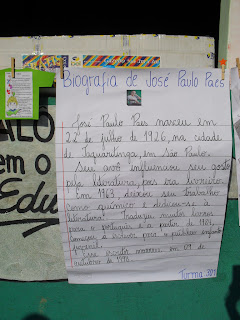 Biografia de José Paulo Paes
José Paulo Paes nasceu em
22 de julho de 1926, na cidade
de Taquaritinga, em São Paulo.
Seu avô influenciou seu gosto
pela literatura, pois era livreiro.
Em 1963, deixou seu trabalho
como químico e dedicou-se à
literatura. Traduziu muitos livros
para o português e a partir de 1984
começou a escrever para o público infanto
juvenil.
Esse escritor morreu em 09 de
outubro de 1998.
Turma 301
ALO
em o
Edu